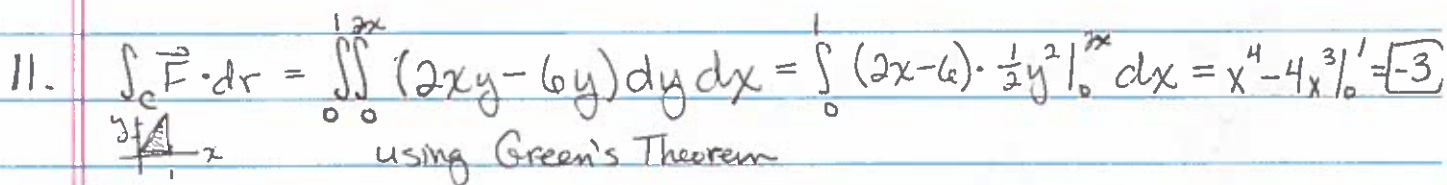 11. ∫_C F⃗·dr = ∫₀¹∫₀²ˣ (2xy-6y) dy dx = ∫₀¹ (2x-6)·½y²|₀²ˣ dx = x⁴-4x³|₀¹ = -3
y x
1
using Green's Theorem